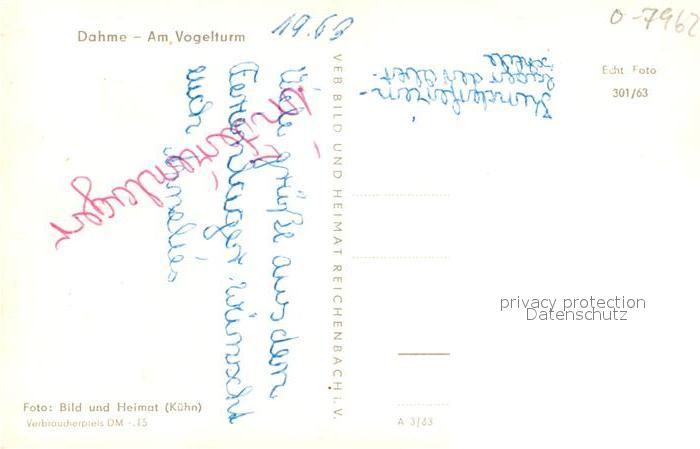 Dahme – Am Vogelturm
1963
O-7962
Echt Foto
301/63
Viele Grüße aus dem
Ferienlager wünscht
euch Annelies
Kinderferien-
lager der
VEB BILD UND HEIMAT REICHENBACH i. V.
privacy protection
Datenschutz
Foto: Bild und Heimat (Kühn)
Verbraucherpreis DM -.15
A 3/63